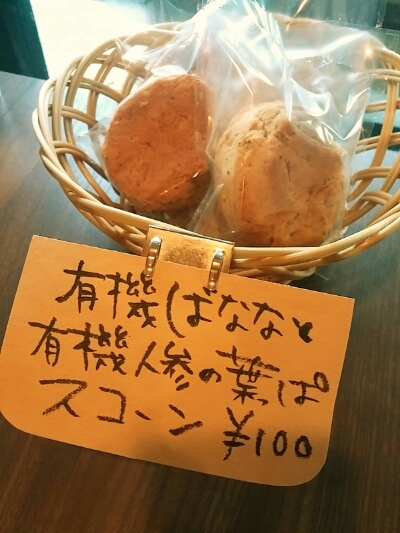 有機ばななと
有機人参の葉っぱ
スコーン ¥100